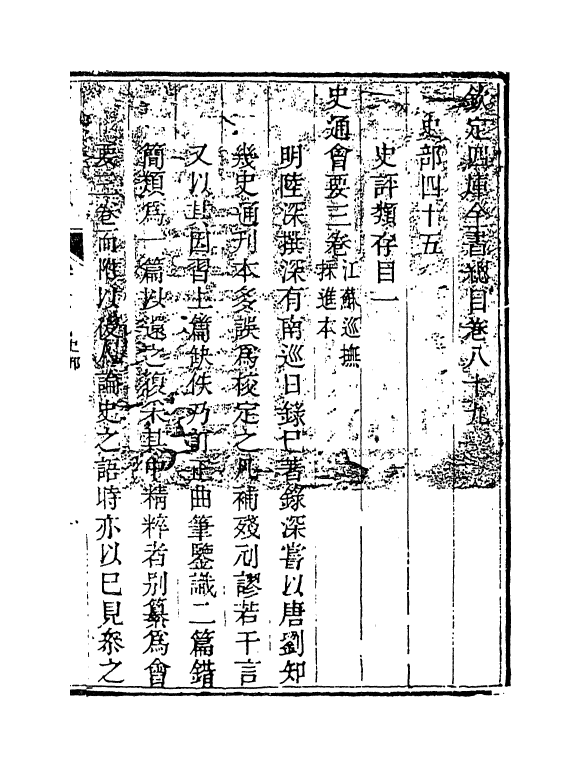 欽定四庫全書總目卷八十九
史部四十五
史評類存目一
史通會要三卷江蘇巡撫採進本
明陸深撰深有南巡日錄已著錄深嘗以唐劉知
幾史通刊本多誤為校定之凡補殘刓謬若干言
又以其因習上篇缺佚乃訂正曲筆鑒識二篇錯
簡類為一篇以還之復采其中精粹者别纂為會
要三卷而附以後人論史之語時亦以已見叅之
史部